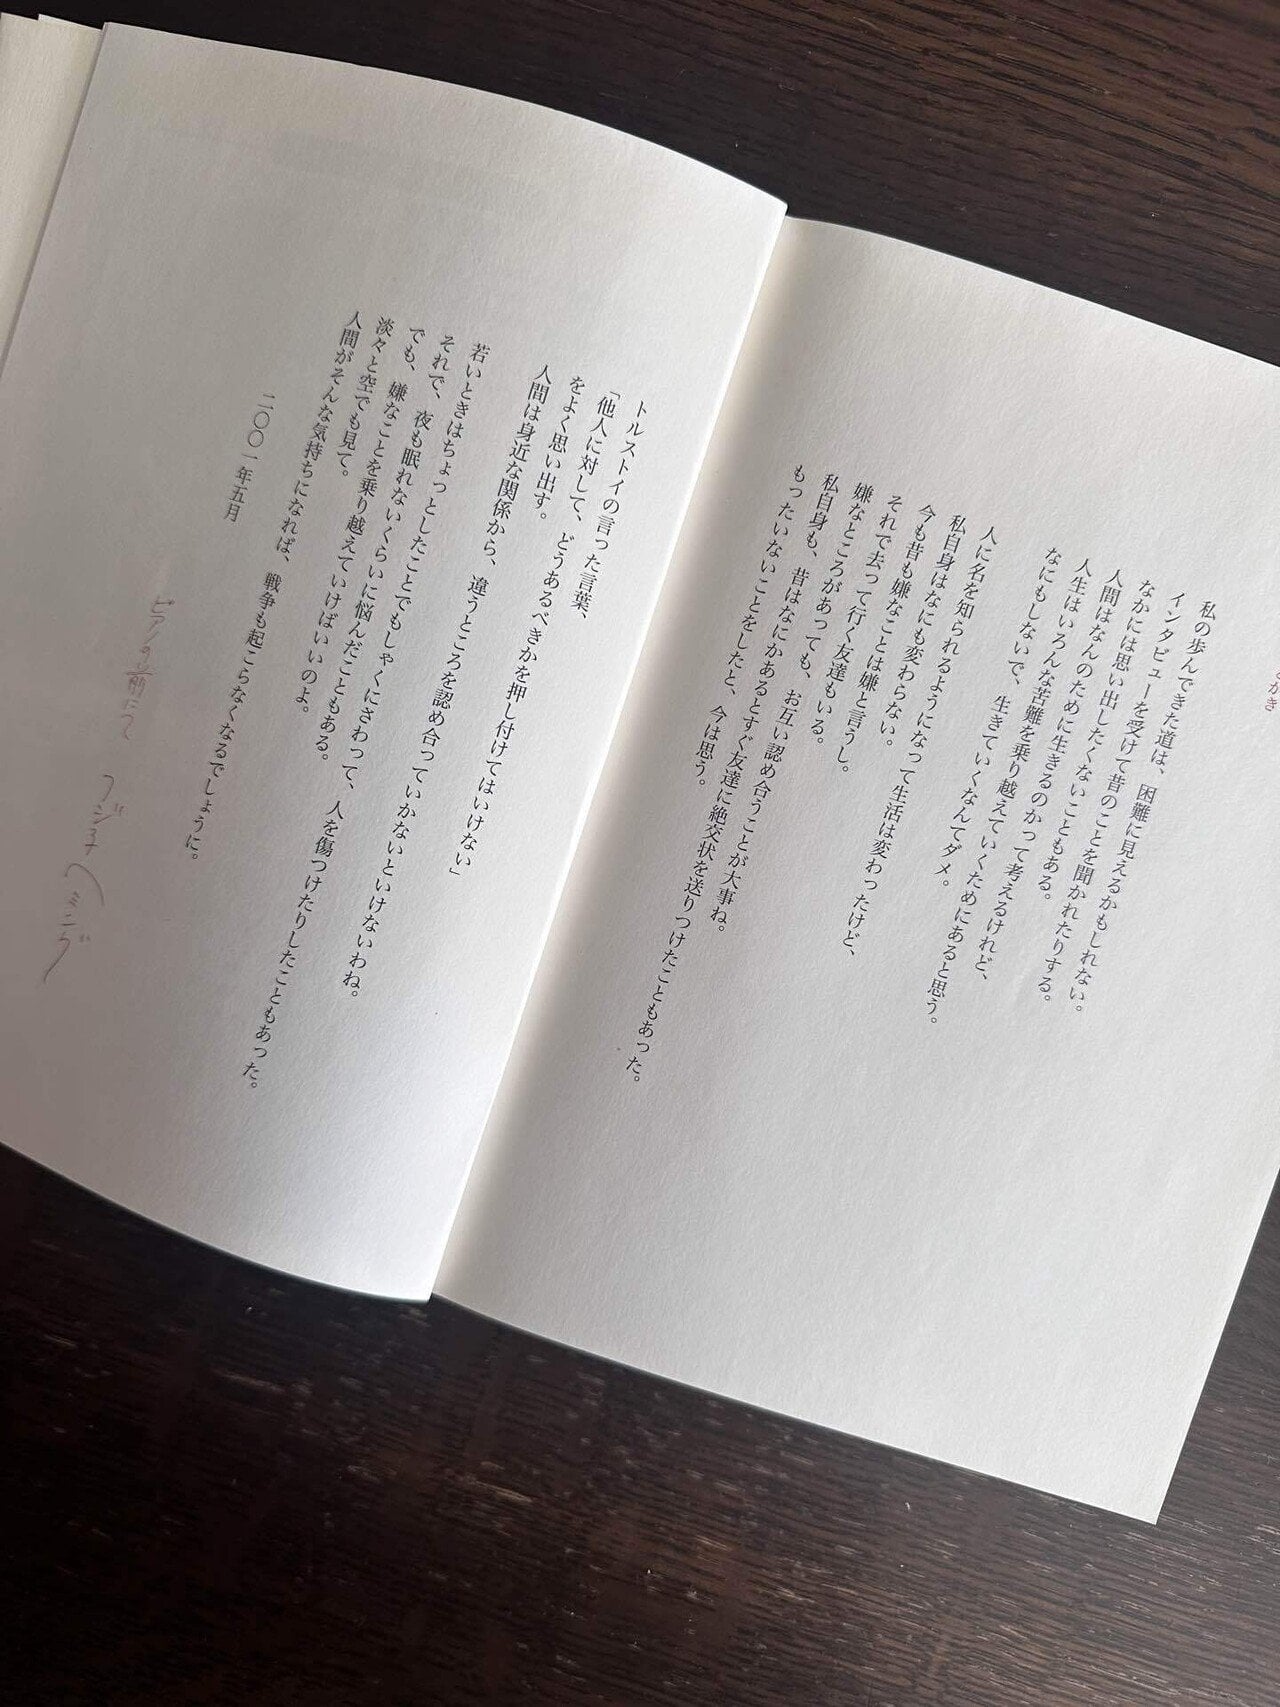 がき
私の歩んできた道は、困難に見えるかもしれない。
インタビューを受けて昔のことを聞かれたりする。
なかには思い出したくないこともある。
人間はなんのために生きるのかって考えるけれど、
人生はいろんな苦難を乗り越えていくためにあると思う。
なにもしないで、生きていくなんてダメ。
人に名を知られるようになって生活は変わったけど、
私自身はなにも変わらない。
今も昔も嫌なことは嫌と言うし。
それで去って行く友達もいる。
嫌なところがあっても、お互い認め合うことが大事ね。
私自身も、昔はなにかあるとすぐ友達に絶交状を送りつけたこともあった。
もったいないことをしたと、今は思う。
トルストイの言った言葉、
「他人に対して、どうあるべきかを押し付けてはいけない」
をよく思い出す。
人間は身近な関係から、違うところを認め合っていかないといけないわね。
若いときはちょっとしたことでもしゃくにさわって、人を傷つけたりしたこともあった。
それで、夜も眠れないくらいに悩んだこともある。
でも、嫌なことを乗り越えていけばいいのよ。
淡々と空でも見て。
人間がそんな気持ちになれば、戦争も起こらなくなるでしょうに。
二〇〇一年五月
ピアノの前にて フジ子ヘミング